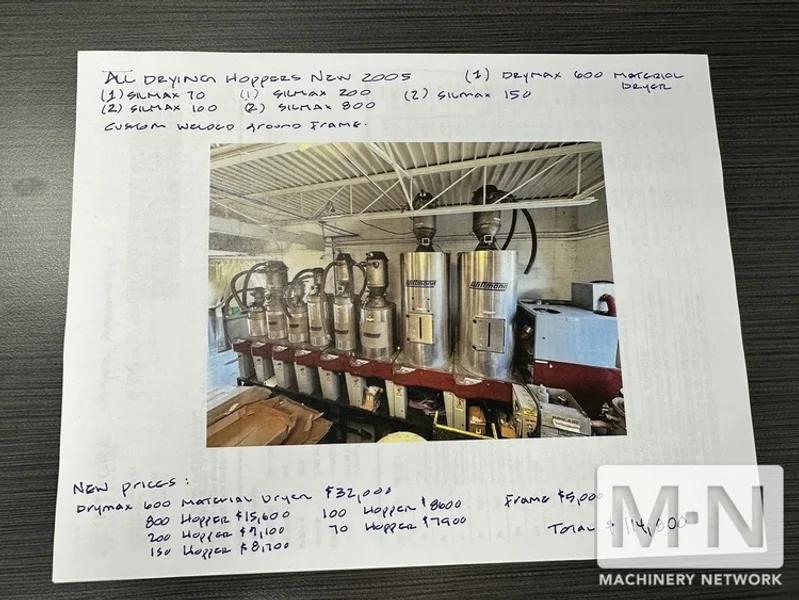 ALL DRYING HOPPERS NEW 2005 (1) DRYMAX 600 MATERIAL DRYER
(1) SILMAX 70 (1) SILMAX 200 (2) SILMAX 150
(2) SILMAX 100 (2) SILMAX 800
CUSTOM WELDED GROUND FRAME.
Wittmann Wittmann
NEW PRICES:
DRYMAX 600 MATERIAL DRYER $32,000
800 HOPPER $15,600 100 HOPPER $8600 FRAME $5,000
200 HOPPER $9,100 70 HOPPER $7900
150 HOPPER $8,700 TOTAL $114,800
M-N
MACHINERY NETWORK